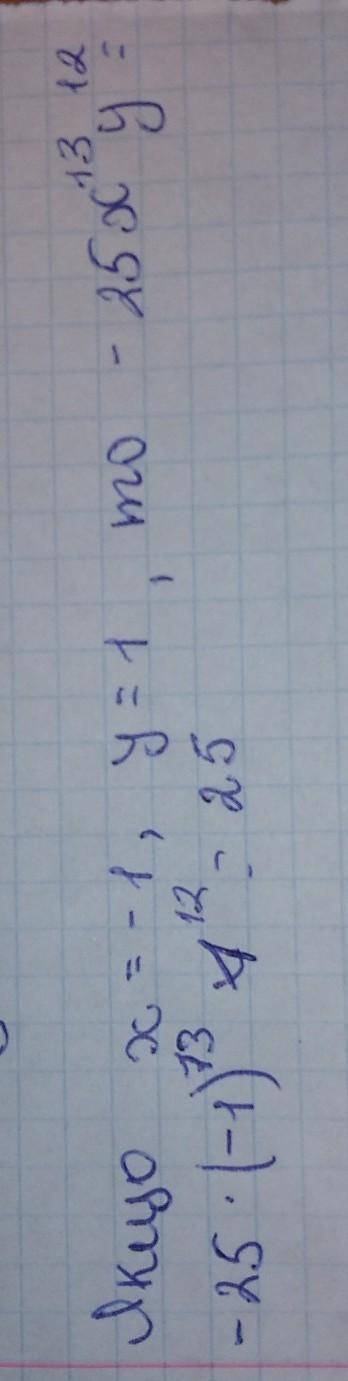 Якщо x = -1, y = 1, то - 25x¹³y¹² =
-25 · (-1)¹³ · 1¹² = 25